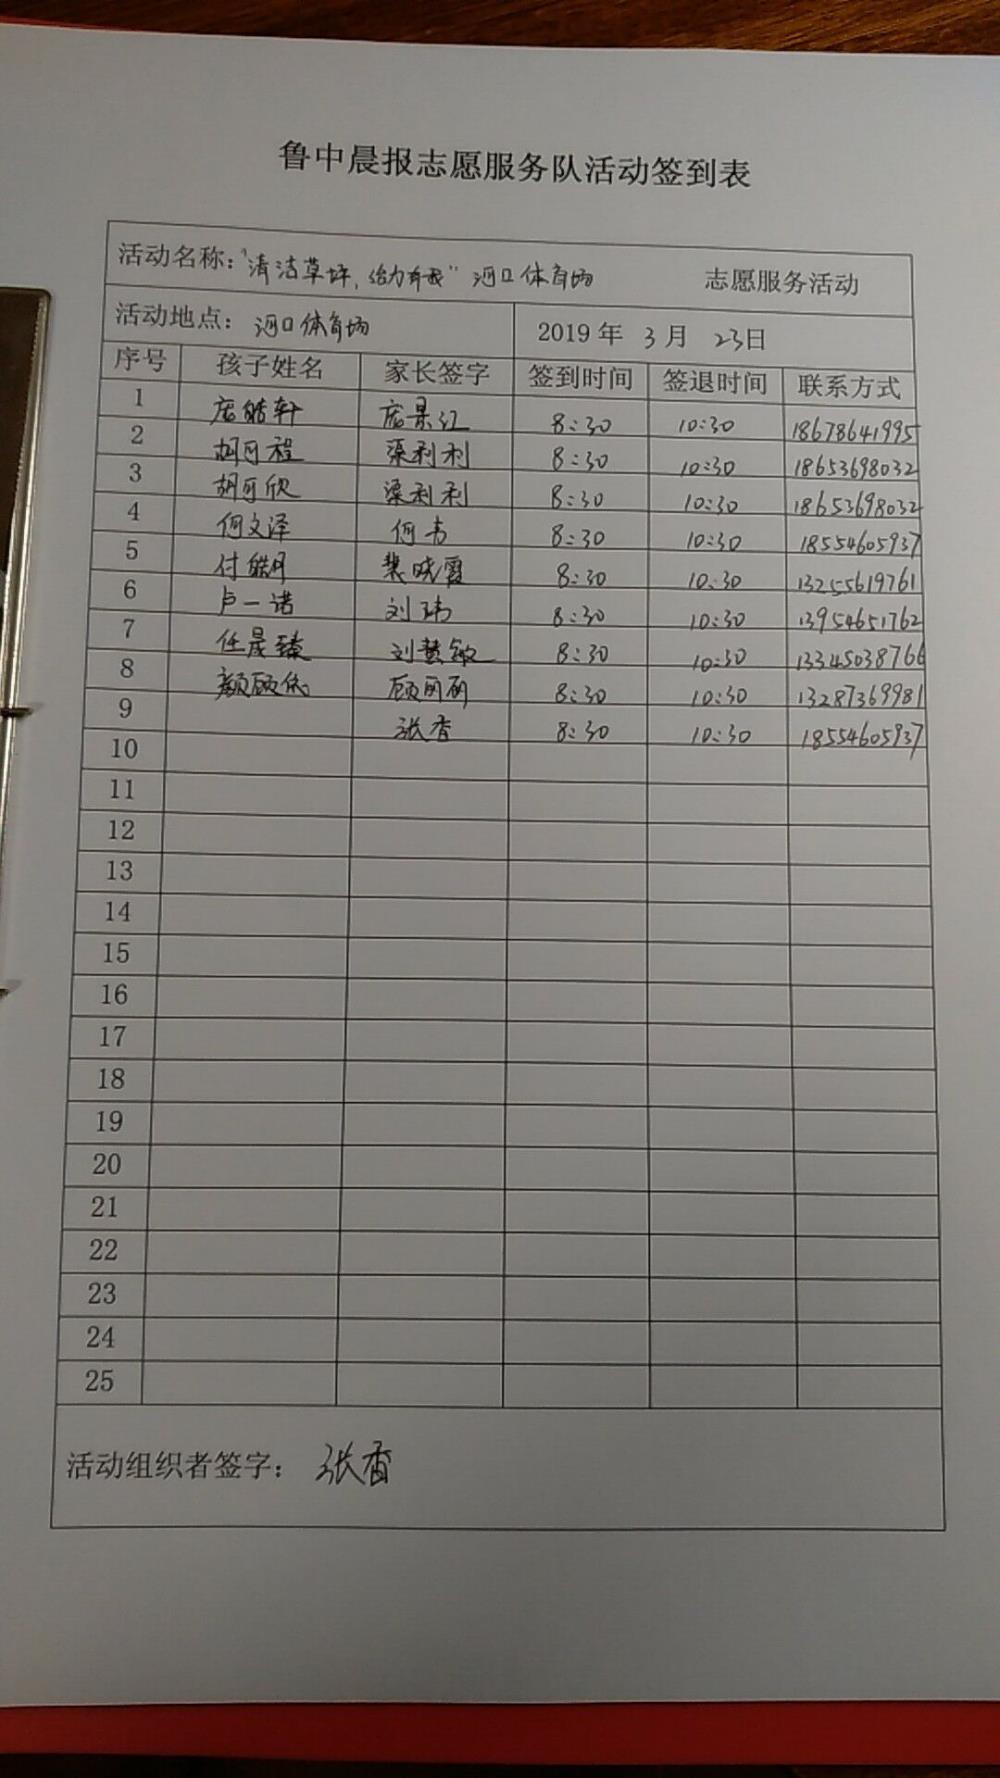 鲁中晨报志愿服务队活动签到表
活动名称："清洁草坪,给力有我"河口体育场 志愿服务活动
活动地点：河口体育场 2019年 3月 23日
序号 孩子姓名 家长签字 签到时间 签退时间 联系方式
1 皓轩 景江 8:30 10:30 18678641995
2 胡可程 渠利利 8:30 10:30 18653698032
3 胡可欣 渠利利 8:30 10:30 18653698032
4 何文泽 何 8:30 10:30 18554605937
5 付皓月 裴晓霞 8:30 10:30 13255619761
6 卢一诺 刘玮 8:30 10:30 13954651762
7 任晟臻 刘慧敏 8:30 10:30 13345038766
8 颜顾依 顾丽丽 8:30 10:30 13287369981
9 张香 8:30 10:30 18554605937
10
11
12
13
14
15
16
17
18
19
20
21
22
23
24
25
活动组织者签字：张香